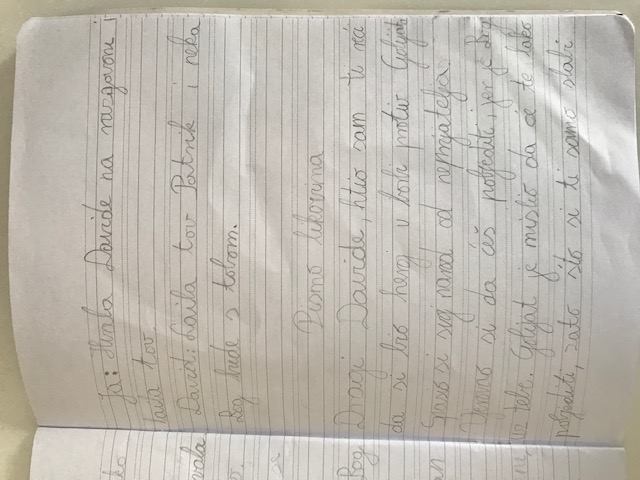 Ja: Hvala Davide na razgovoru i
Laila tov
David: Laila tov Patrik i neka
Bog bude s tobom.
Pismo
Dragi Davide, htio sam ti reći
da si bio heroj u borbi protiv Golijata
Spaso si svoj narod od neprijatelja.
si da ćeš pobjediti, jer je Bog
uz tebe. Golijat je mislio da će te lako
pobjediti, zato što si ti samo slabi